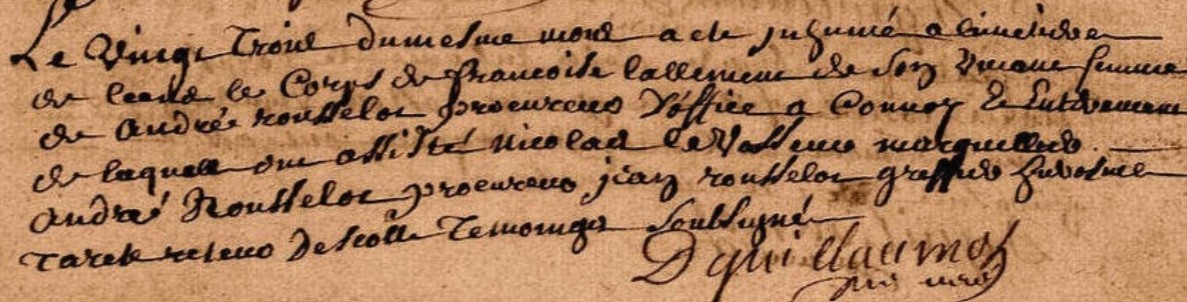 Le vingt trois du mesme mois a ete inhumé a cimetiere
de ceans le Corps de francoise lallement de son vivant femme
de André rousselot procureur d'office a Connoy & Enterrement
de laquelle ont assisté Nicolas le Vasseur marguellier
André Rousselot procureur jean rousselot greffier
recteur descolle Temoings soubsigné
D guillaumot